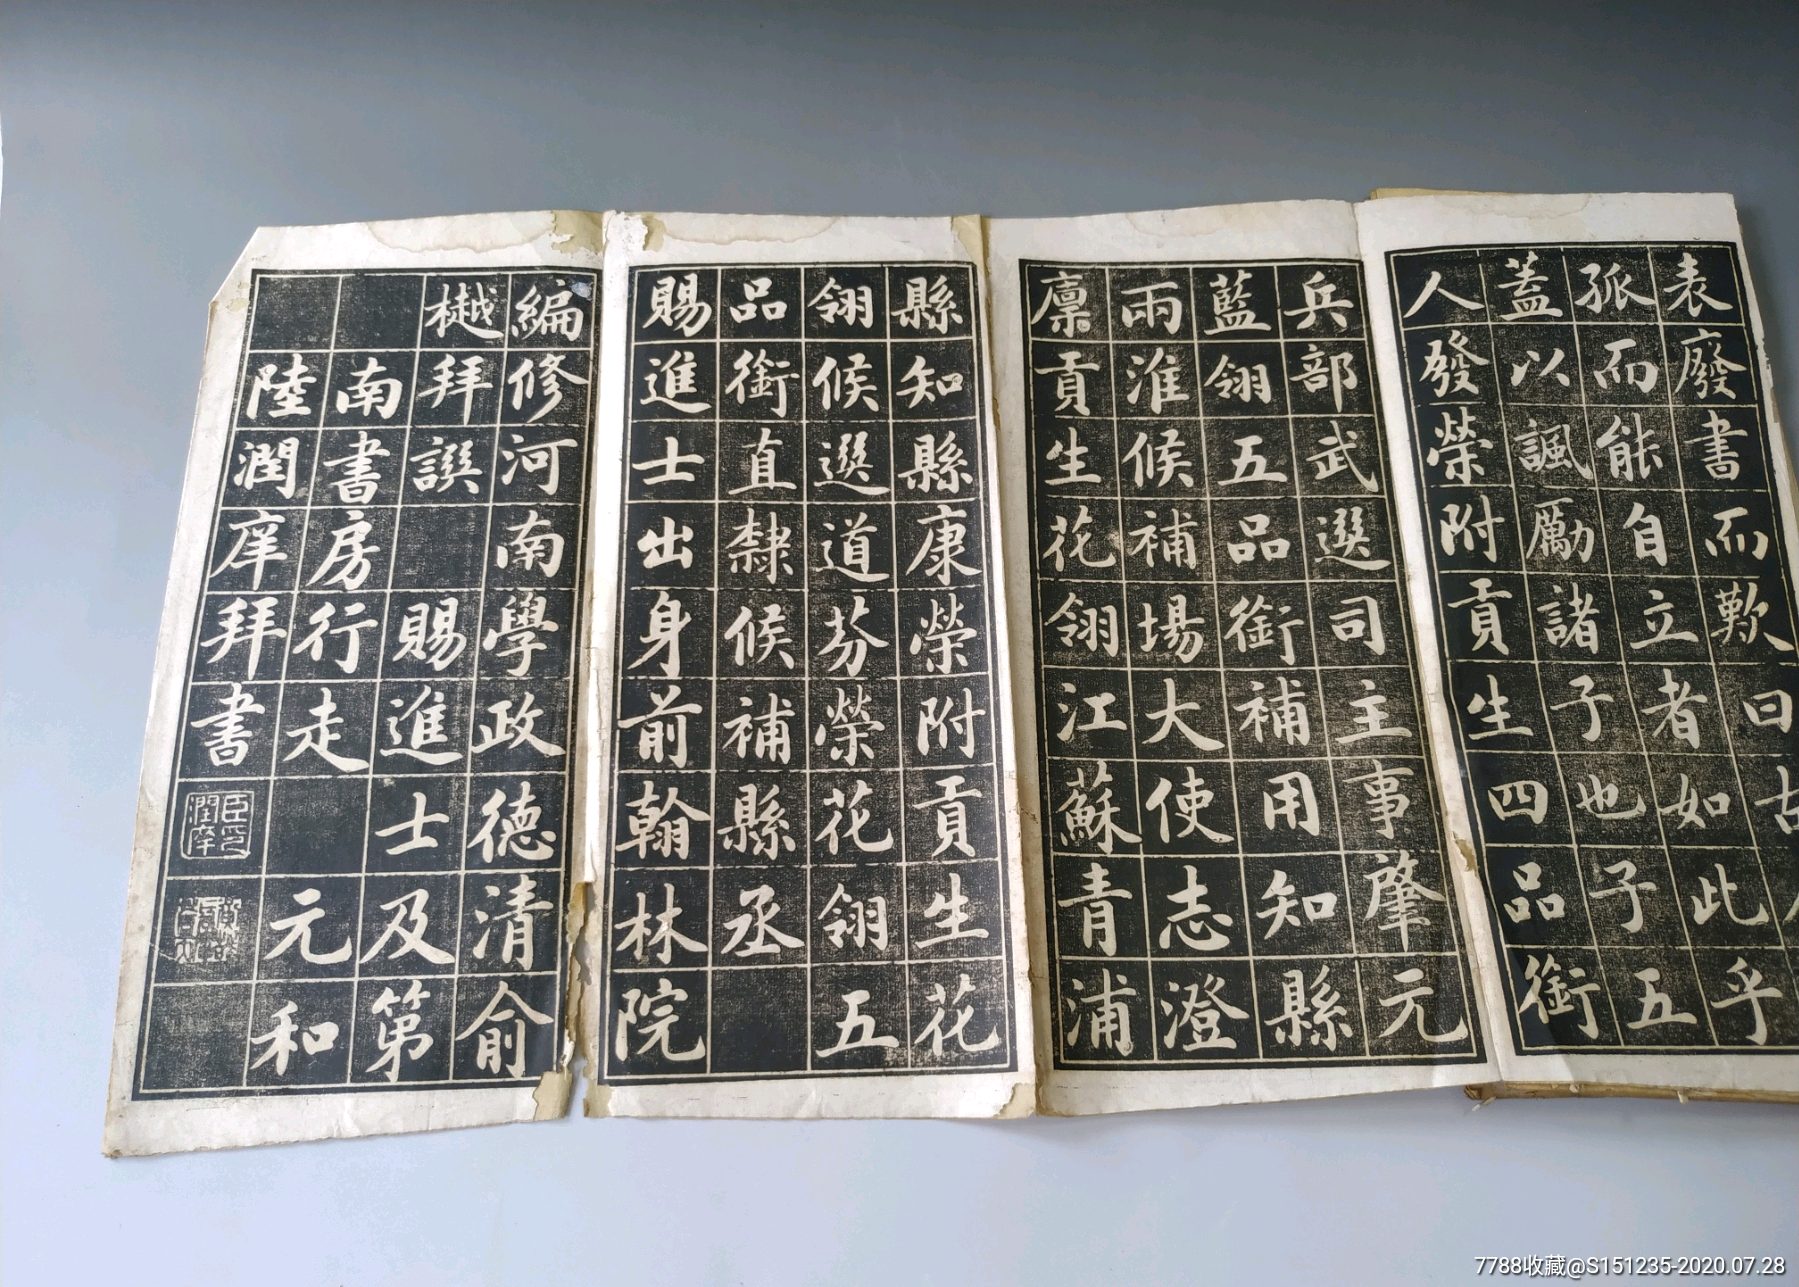 表廢書而歎曰古
孤而能自立者如此乎
蓋以諷勵諸子也子五
人發榮附貢生四品銜
兵部武選司主事肇元
藍翎五品銜補用知縣
兩淮候補場大使志澄
廪貢生花翎江蘇青浦
縣知縣康榮附貢生花
翎候選道芬榮花翎五
品銜直隸候補縣丞
賜進士出身前翰林院
編修河南學政德清俞
樾拜譔 賜進士及第
南書房行走 元和
陸潤庠拜書
臣潤庠印
7788收藏@S151235-2020.07.28